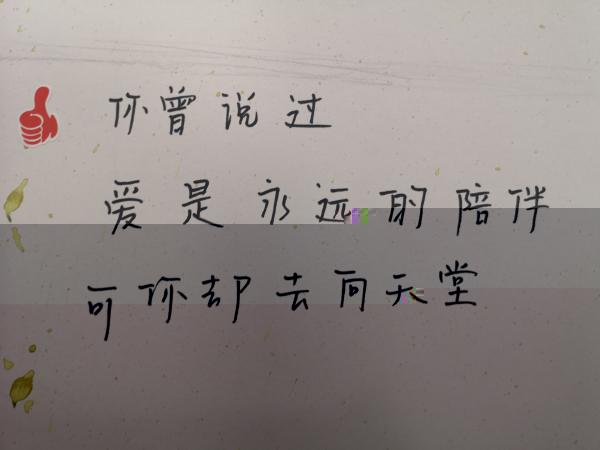 你曾说过
爱是永远的陪伴
可你却去向天堂